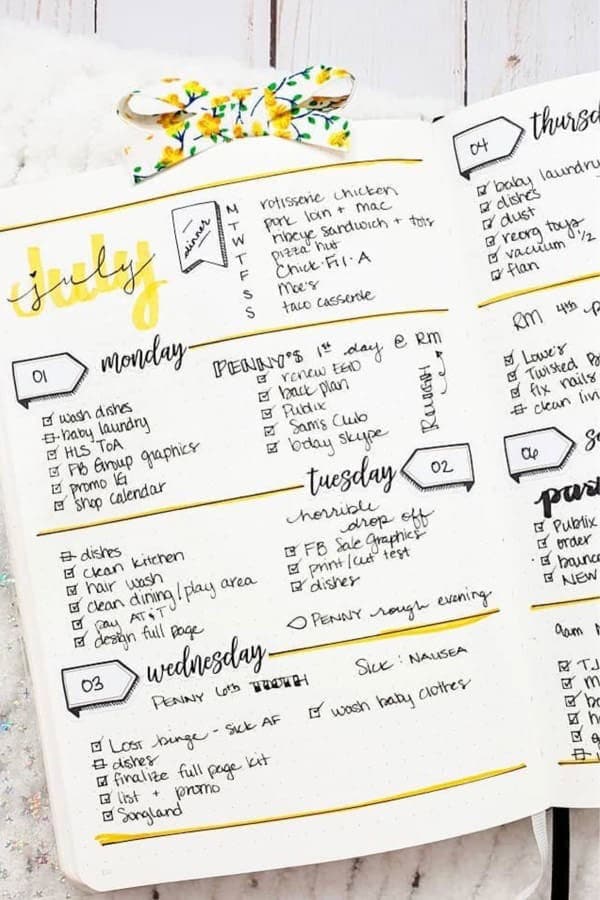 july
dinner
M rotisserie chicken
T pork loin + mac
W ribeye sandwich + tots
T pizza hut
F Chick-Fil-A
S Moe's
S taco casserole
01
monday
PENNY'S 1st day @ RM
wash dishes
baby laundry
HLS TOA
FB Group graphics
promo IG
shop calendar
renew EGD
back plan
Publix
Sam's Club
bday skype
ROUGH
tuesday
02
horrible
drop off
dishes
clean kitchen
hair wash
clean dining/play area
pay AT&T
design full page
FB Sale Graphics
print/cut test
dishes
PENNY rough evening
03
wednesday
PENNY 6th TOOTH
Sick: NAUSEA
Lost binge - sick AF
dishes
finalize full page kit
list + promo
Songland
wash baby clothes
04
thursd
baby laundry
dishes
dust
reorg toys
vacuum 1/2
flan
RM 4th
Lowe's
Twisted
fix nails
clean
06
Publix
order
NEW
9am